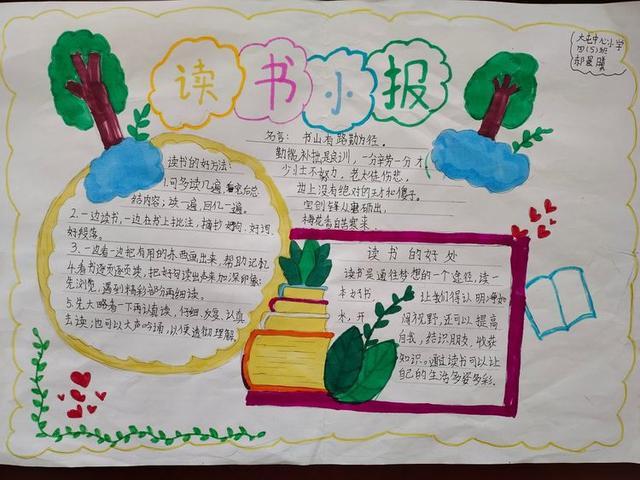 读书小报
大屯中心小学
四(5)班
郝晨曦
名言: 书山有路勤为径。
勤能补拙是良训,一分辛劳一分才
少壮不努力,老大徒伤悲。
世上没有绝对的天才和傻子。
宝剑锋从磨砺出,
梅花香自苦寒来。
读书的好方法:
1.可多读几遍,
结内容;读一遍,回忆一遍。
2.一边读书,一边在书上批注,摘抄好句、好词
好段落。
3.一边看一边把有用的东西画出来,帮助记忆
4.看书逐页逐页读,把好句读出来加深印象;
先浏览,遇到精彩部分再细读。
5.先大略看一下再认真读,仔细、反复、认真
去读;也可以大声吟诵,以便透彻理解。
读书的好处
读书是通往梦想的一个途径,读一
本好书, 让我们得以明净如
水,开 阔视野,还可以提高
自我,结识朋友,收获
知识。通过读书可以让
自己的生活多姿多彩。